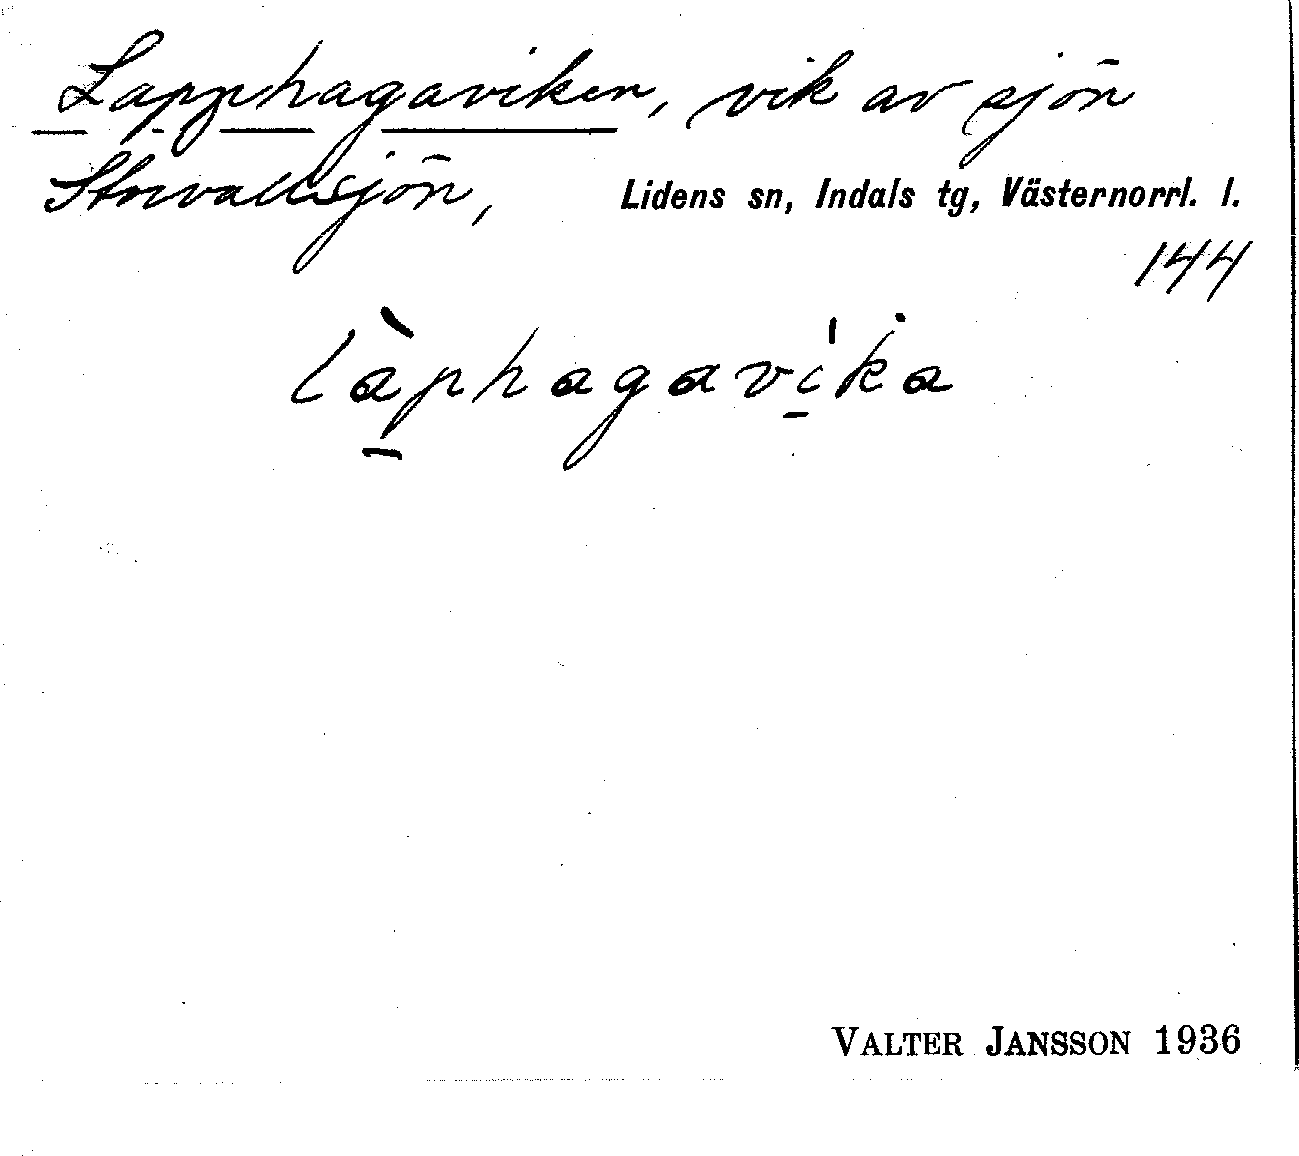 Lapphagaviken, vik av sjön
Storvallsjön, Lidens sn, Indals tg, Västernorrl. l.
144
làphagavi̍ka
VALTER JANSSON 1936